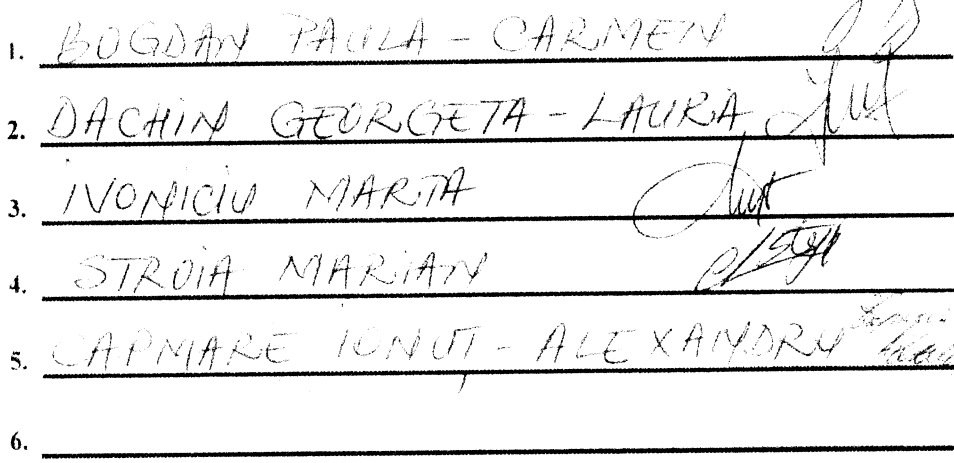 1. BOGDAN PAULA - CARMEN
2. DACHIN GEORGETA - LAURA
3. IVONICIU MARTA
4. STROIA MARIAN
5. CAPMARE IONUȚ - ALEXANDRU
6.